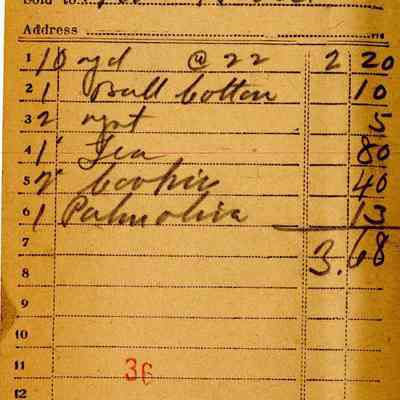 Sold to
Address
1 10 yd @ 22 2 20
2 1 Ball Cotton 10
3 2 ypst 5
4 1 Tea 80
5 2 Cookie 40
6 1 Palmoliva 13
7 3.68
8
9
10
11 36
12